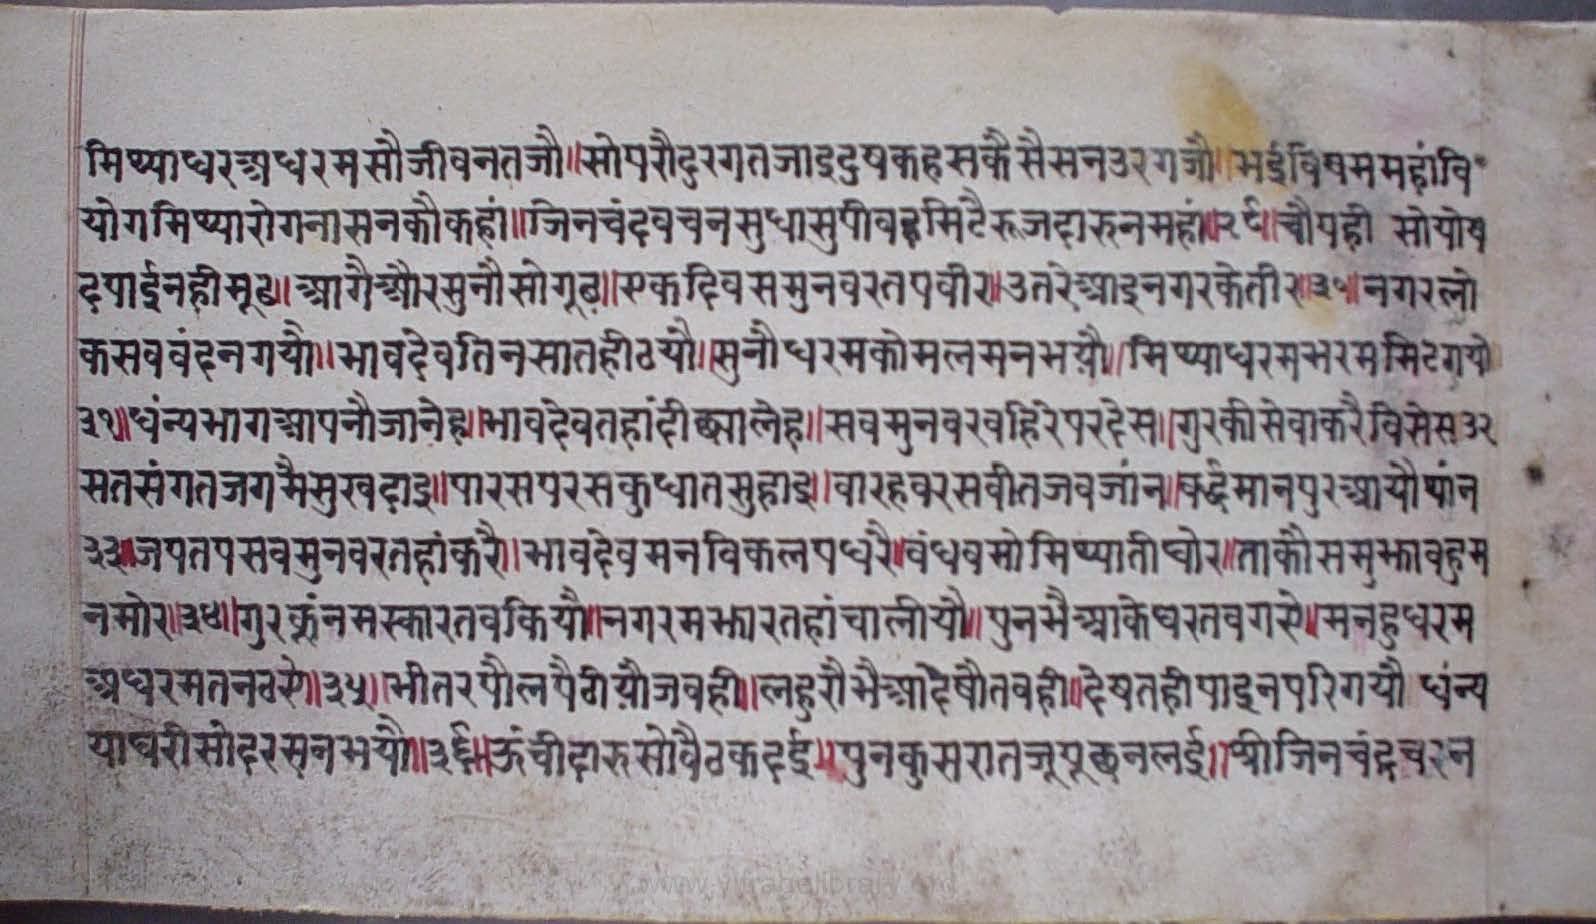 मिथ्याघरअधरमसौजीवनतजौ॥सोपरौदुरगतजाइदुषकहसकैसैसन३रगजौ॥भईविषममहांवि
योगमिथ्यारोगनासनकौकहां॥जिनचंदवचनसुधासुपीवहुमिटैरुजदारुनमहां॥२९॥चौपही सोयोष
दपाईनहीमूढ॥आगैऔरसुनौसोगूढ॥एकदिवसमुनवरतपवीर॥उतरेआइनगरकेतीर॥३०॥नगरलो
कसबवंदनगयौ॥भावदेवतिनसातहीठयौ॥सुनौधरमकोमलमनभयौ॥मिथ्याधरमभरममिटगयो
३१॥धंन्यभागआपनौजानेह॥भावदेवतहांदीछ्यालेह॥सवमुनवरवहिरेपरदेस॥गुरकीसेवाकरैविसेस३२
सतसंगतजगमैसुखदाइ॥पारसपरसकुधातसुहाइ॥वारहवरसवीतजवजांन॥वर्द्धमानपुरआयौथांन
३३॥जपतपसवमुनवरतहांकरै॥भावदेवमनविकलपधरै॥बंधवमोमिथ्यातीघोर॥ताकौसमुझावहुम
नमोर॥३४॥गुरकूंनमस्कारतवकियौ॥नगरमझारतहांचालीयौ॥पुनभैआकेघरतवगसे॥मनहुधरम
अधरमतनठसे॥३५॥भीतरपौलपैठीयौजवही॥लहुरौभैआदेषौतवही॥देषतहीपाइनपरिगयौ धंन्य
याघरीसोदरसनभयौ॥३६॥ऊंचीदारुसोवैठकदई॥पुनकुसरातजूपूछनलई॥श्रीजिनचंद्रचरन
www.vitragelibrary.org